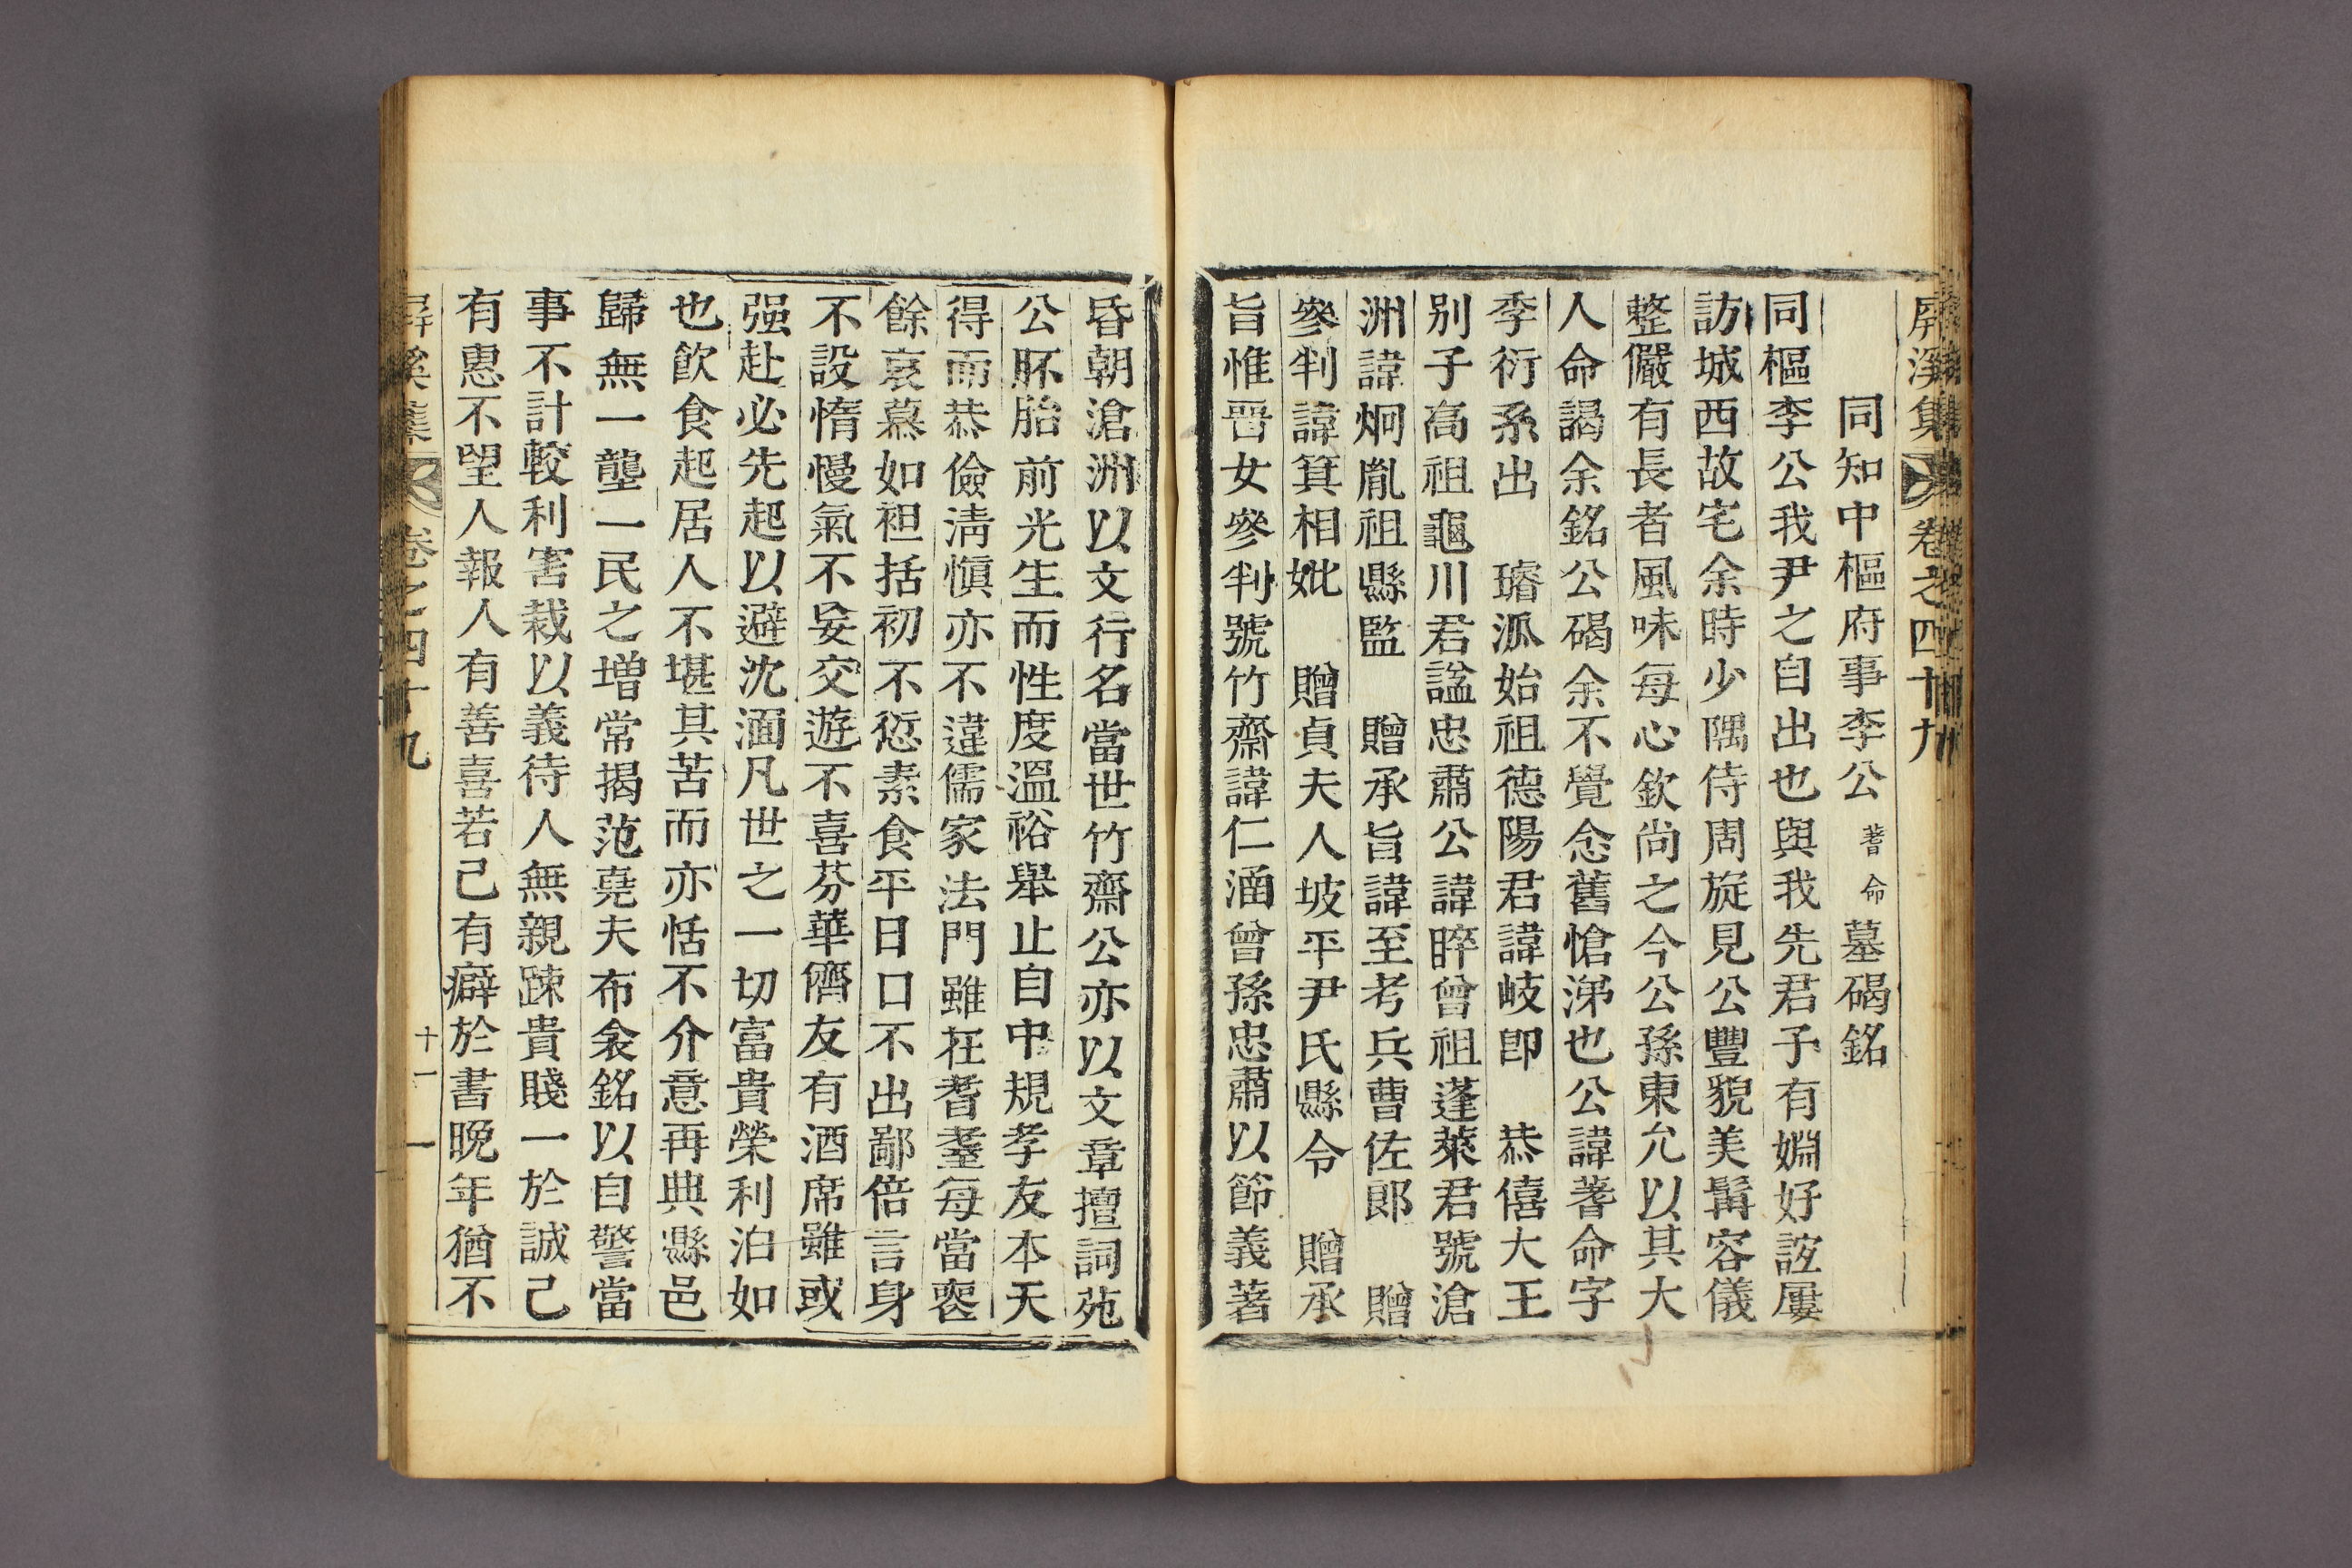 屏溪集 卷之四十九
同知中樞府事李公 蓍命 墓碣銘
同樞李公我尹之自出也與我先君子有婣好誼屢
訪城西故宅余時少隅侍周旋見公豐貌美髯容儀
整儼有長者風味每心欽尚之今公孫東允以其大
人命謁余銘公碣余不覺念舊愴涕也公諱蓍命字
季衍系出 璿派始祖德陽君諱岐卽 恭僖大王
別子高祖龜川君諡忠肅公諱睟曾祖蓬萊君號滄
洲諱炯胤祖縣監 贈承旨諱至考兵曹佐郎 贈
參判諱箕相妣 贈貞夫人坡平尹氏縣令 贈承
旨惟晋女參判號竹齋諱仁涵曾孫忠肅以節義著
昏朝滄洲以文行名當世竹齋公亦以文章擅詞苑
公胚胎前光生而性度溫裕擧止自中規孝友本天
得而恭儉淸愼亦不違儒家法門雖在耆耋每當喪
餘哀慕如袒括初不愆素食平日口不出鄙倍言身
不設惰慢氣不妄交遊不喜芬華儕友有酒席雖或
强赴必先起以避沈湎凡世之一切富貴榮利泊如
也飮食起居人不堪其苦而亦恬不介意再典縣邑
歸無一壟一民之增常揭范堯夫布衾銘以自警當
事不計較利害裁以義待人無親踈貴賤一於誠己
有惠不望人報人有善喜若己有癖於書晩年猶不
屛溪集 卷之四十九 十一